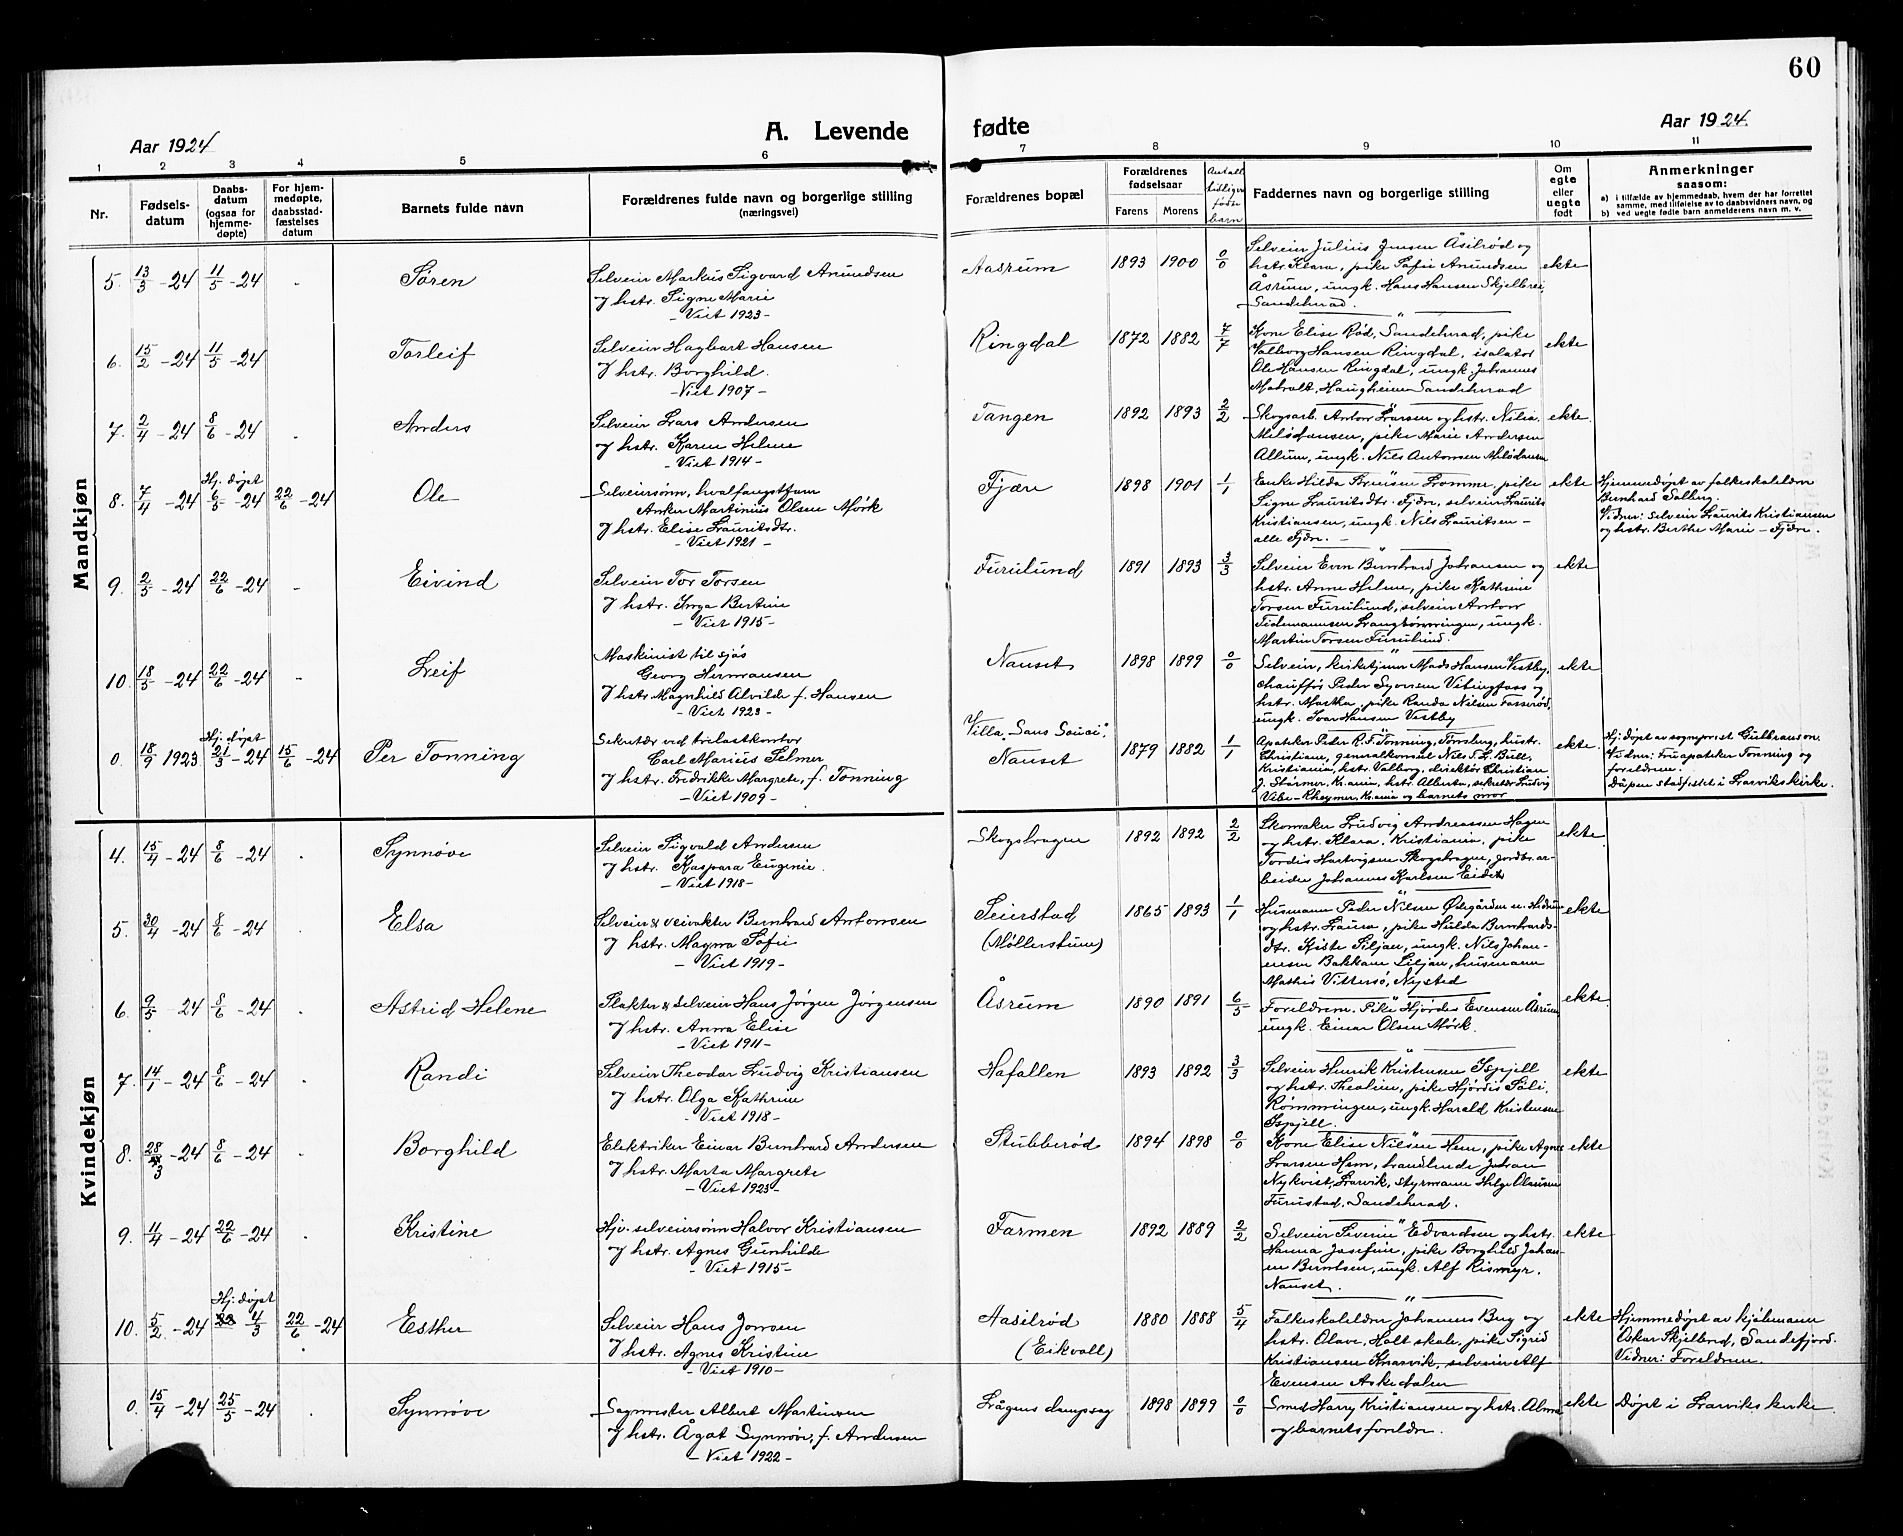 60
Aar 1924
A. Levende
fødte
Aar 1924.
1 2 3 4 5 6 7 8 9 10 11
Nr.
Fødsels-
datum
Daabs-
datum
(ogsaa for
hjemme-
døpte)
For hjem-
medøpte,
daabsstad-
fæstelses
datum
Barnets fulde navn
Forældrenes fulde navn og borgerlige stilling
(næringsvei)
Forældrenes bopæl
Forældrenes
fødselsaar
Farens Morens
Antall
tidligere
fødte
barn
Faddernes navn og borgerlige stilling
Om
egte
eller
uegte
født
Anmerkninger
saasom:
a) i tilfælde av hjemmedaab, hvem der har forrettet
samme, med tilføielse av to daabsvidners navn, og
b) ved uegte fødte barn anmelderens navn m. v.
Mandkjøn
5. 13/3 -24 11/5 -24 - Søren
Selveier Markus Sigvard Amundsen
og hstr. Signe Marie
- Viet 1923 -
Aasrum 1893 1900 0/0
Selveier Julius Jensen Åsilrød og
hstr. Klara, pike Sofie Amundsen
Åsrum, ungk. Hans Hansen Skjelbrei,
Sandeherad.
ekte
6. 15/2 -24 11/5 -24 Torleif
Selveier Hagbart Hansen
& hstr. Borghild.
- Viet 1907 -
Ringdal 1872 1882 7/7
Kone Elise Rød, Sandeherad, pike
Valborg Hansen Ringdal, isolatør
Ole Hansen Ringdal, ungk. Johannes
Haugheim Sandeherad
ekte
7. 2/4 -24 8/6 -24 - Anders
Selveier Lars Andersen
og hstr. Karen Helene
- Viet 1914 -
Tangen 1892 1893 2/2
Skogsarb. Anton Larsen og hstr. Nilia
pike Marie Andersen
Allum, ungk. Nils Antonsen
ekte.
8. 7/4 -24 Hj. døpt 6/5 -24 22/6 -24 Ole
Selveiersønn, hvalfangstform
Anker Martinius Olsen Mørk
& hstr. Elise Lauritsdtr.
- Viet 1921 -
Fjære 1898 1901 1/1
Enke Hilda Bruusen Lomme, pike
Signe Lauritsdtr. Fjære, selveier Laurits
Kristiansen, ungk. Nils Lauritsen -
alle Fjære. -
ekte
Hjemmedøpt av folkeskolelærer
Bernhard Salling.
Vidner: Selveier Laurits Kristiansen
og hstr. Berthe Marie - Fjære.
9. 2/5 -24 22/6 -24 - Eivind
Selveier Tor Torsen
& hstr. Inga Bertine
- Viet 1915 -
Furulund 1891 1893 3/3
Selveier Even Bernhard Johansen og
hstr. Anne Helene, pike Kathrine
Torsen Furulund, selveier Anton
Tidemannsen Langtønneringen, ungk.
Martin Torsen Furulund.
ekte
10. 18/5 -24 22/6 -24 - Leif
Maskinist til sjøs
Georg Hermansen
& hstr. Magnhild Alvilde f. Hansen
- Viet 1923 -
Nanset 1898 1899 0/0
Selveier, kirketjener Mads Hansen Vestby,
chauffør Peder Syversen Vitingfoss og
hstr. Martha, pike Randa Nilsen Fosserød,
ungk. Ivar Hansen Vestby
ekte
0. 18/9 1923 Hj. døpt 21/3 -24 15/6 -24 Per Tonning
Sekretær ved trelastkontor
Carl Marius Selmer
& hstr. Fredrikke Margrete, f. Tonning
- Viet 1909 -
Villa „Sans Souci",
Nanset 1879 1882 1/1
Apoteker Peder R. F. Tonning, Tønsberg, hustr.
Christiane, generalkonsul Nils S. L. Bull,
Kristiania, hstr. Valborg, direktør Christian
J. Størmer, Krania, hstr. Alberta, sekretær Ludvig
Vibe-Rheymer, Krania og barnets mor
ekte.
Hj. døpt av sogneprest Gulbranson.
Vidner: Fru apoteker Tonning og
foreldrene.
Dåpen stadfestet i Larviks kirke.
Kvindekjøn
4. 15/4 -24 8/6 -24 - Synnøve
Selveier Sigvald Andersen
& hstr. Kaspara Eugenie.
- Viet 1918 -
Skogshagen 1892 1892 2/2
Skomaker Ludvig Andreassen Hagen
og hstr. Klara, Kristiania, pike
Tordis Hartvigsen Skogshagen, jordbr.ar-
beider Johannes Karlsen Eidet
ekte
5. 30/4 -24 8/6 -24 Elsa
Selveier & veivokter Bernhard Antonsen
& hstr. Magna Sofie
- Viet 1919 -
Seierstad 1865 1893 1/1
(Møllerstuen)
Husmann Peder Nilsen Ødegården
og hstr. Laura, pike Hulda Bernhards-
dtr. Kiste Siljan, ungk. Nils Johan-
nesen Bakkane Siljan, husmann
Mathis Vittersø, Nysted
ekte
6. 9/5 -24 8/6 -24 - Astrid Helene
Slakter & selveier Hans Jørgen Jørgensen
& hstr. Anna Elise
- Viet 1911 -
Åsrum 1890 1891 6/5
Foreldrene. Pike Hjørdis Evensen Åsrum
ungk. Einar Olsen Mørk.
ekte.
7. 14/1 -24 8/6 -24 - Randi
Selveier Theodor Ludvig Kristiansen
& hstr. Olga Kathrine
- Viet 1918 -
Hafallen 1893 1892 3/3
Selveier Henrik Kristensen Ispjell
og hstr. Theoline, pike Hjørdis Søli,
Rømmingen, ungk. Harald Kristensen
Ispjell.
ekte
8. 28/3 -24 8/6 -24 - Borghild
Elektriker Einar Bernhard Andersen
& hstr. Marta Margrete
- Viet 1923 -
Stubberød 1894 1898 0/0
Kone Elise Nilsen Hem, pike Agnes
Larsen Hem, handlende Johan
Nykvist, Larvik, styrmann Helge Olausen
Furustad, Sandeherad.
ekte
9. 11/4 -24 22/6 -24 . Kristine
Hjv. selveiersønn Halvor Kristiansen
og hstr. Agnes Gunhilde
- Viet 1915 -
Farmen 1892 1889 2/2
Selveier Severin Edvardsen og hstr.
Hanna Josefine, pike Borghild Johan-
ne Berntsen, ungk. Alf Rismyr,
Nanset.
ekte
10. 5/2 -24 Hj. døpt 4/3 22/6 -24 Esther
Selveier Hans Jonsen
& hstr. Agnes Kristine
- Viet 1910 -
Aasilrød 1880 1888 5/4
(Eikvoll)
Folkeskolelærer Johannes Berg og
hstr. Olave, Holt skole, pike Sigrid
Kristiansen Knarvik, selveier Alf
Evensen Askedalen
ekte
Hjemmedøpt av kjølemann
Oskar Skjelland, Sandefjord.
Vidner: Foreldrene.
0. 15/4 -24 25/5 -24 . Synnøve
Sagmester Albert Martinsen
& hstr. Ågot Synnøve, f. Andersen
- Viet 1922 -
Lågens dampsag 1898 1899 0/0
Smed Harry Kristiansen og hstr. Alma
og barnets foreldre.
ekte
Døpt i Larviks kirke.